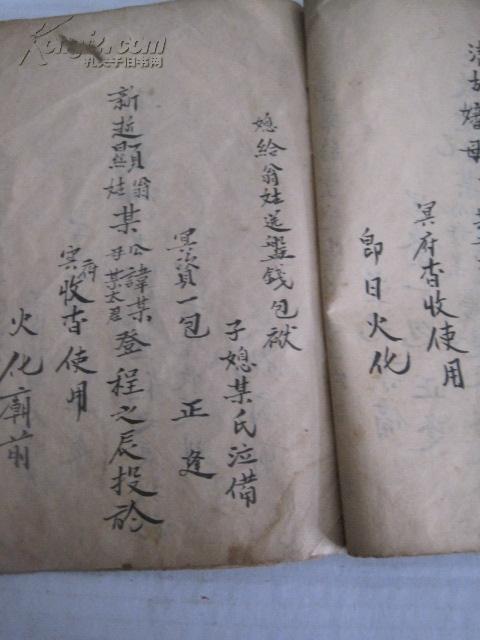 清故嬸母
冥府查收使用
即日火化
媳給翁姑送盤錢包袱
子媳某氏泣備
冥資一包 正逢
新逝顯翁姑某公諱某母某太君登程之辰投於
冥府收查使用
火化廟前
Kongfz.com
孔夫子旧书网